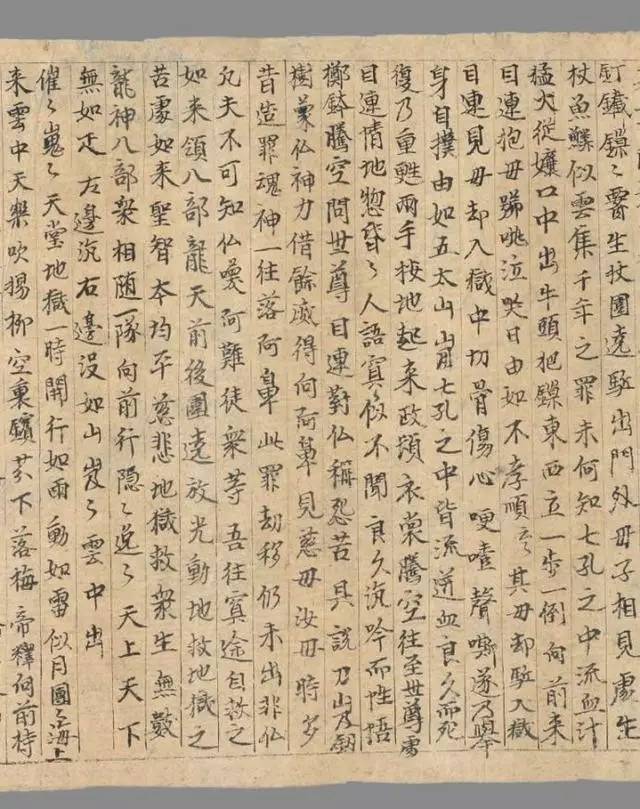 釘鑯鏁〻響生杖團遶駈出門外母子相見處生
杖魚鱗似雲集千年之罪未何知七孔之中流血汁
猛火從孃口中出牛頭把鏁東西立一步一倒向前来
目連抱母號咷泣哭曰由如不孝順云其母却駈入獄
目連見母却入獄中切骨傷心哽噎聲嘶遂乃舉
身自撲由如五太山崩七孔之中皆流迸血良久而死
復乃重甦兩手按地起来政頓衣裳騰空往至世尊處
目連情地惚昏〻人語冥〻似不聞良久沉吟而性語
擲鉢騰空問世尊目連對仏稱怨苦具說刀山及劔
樹蒙仏神力借餘威得向阿鼻見慈母汝母時多
昔造罪魂神一往落阿鼻此罪劫移仍未出非仏
凡夫不可知仏喚阿難徒衆等吾往冥途自救之
如来領八部龍天前後圍遶放光動地救地獄之
苦處如来聖智本均平慈悲地獄救衆生無數
龍神八部衆相随一隊向前行隐〻逸〻天上天下
無如疋左邊沉右邊没如山岌〻雲中出
催〻嵬〻天堂地獄一時開行如雨動如雷似月團〻海上
来雲中天樂吹楊柳空裏繽芬下落梅帝釋向前持